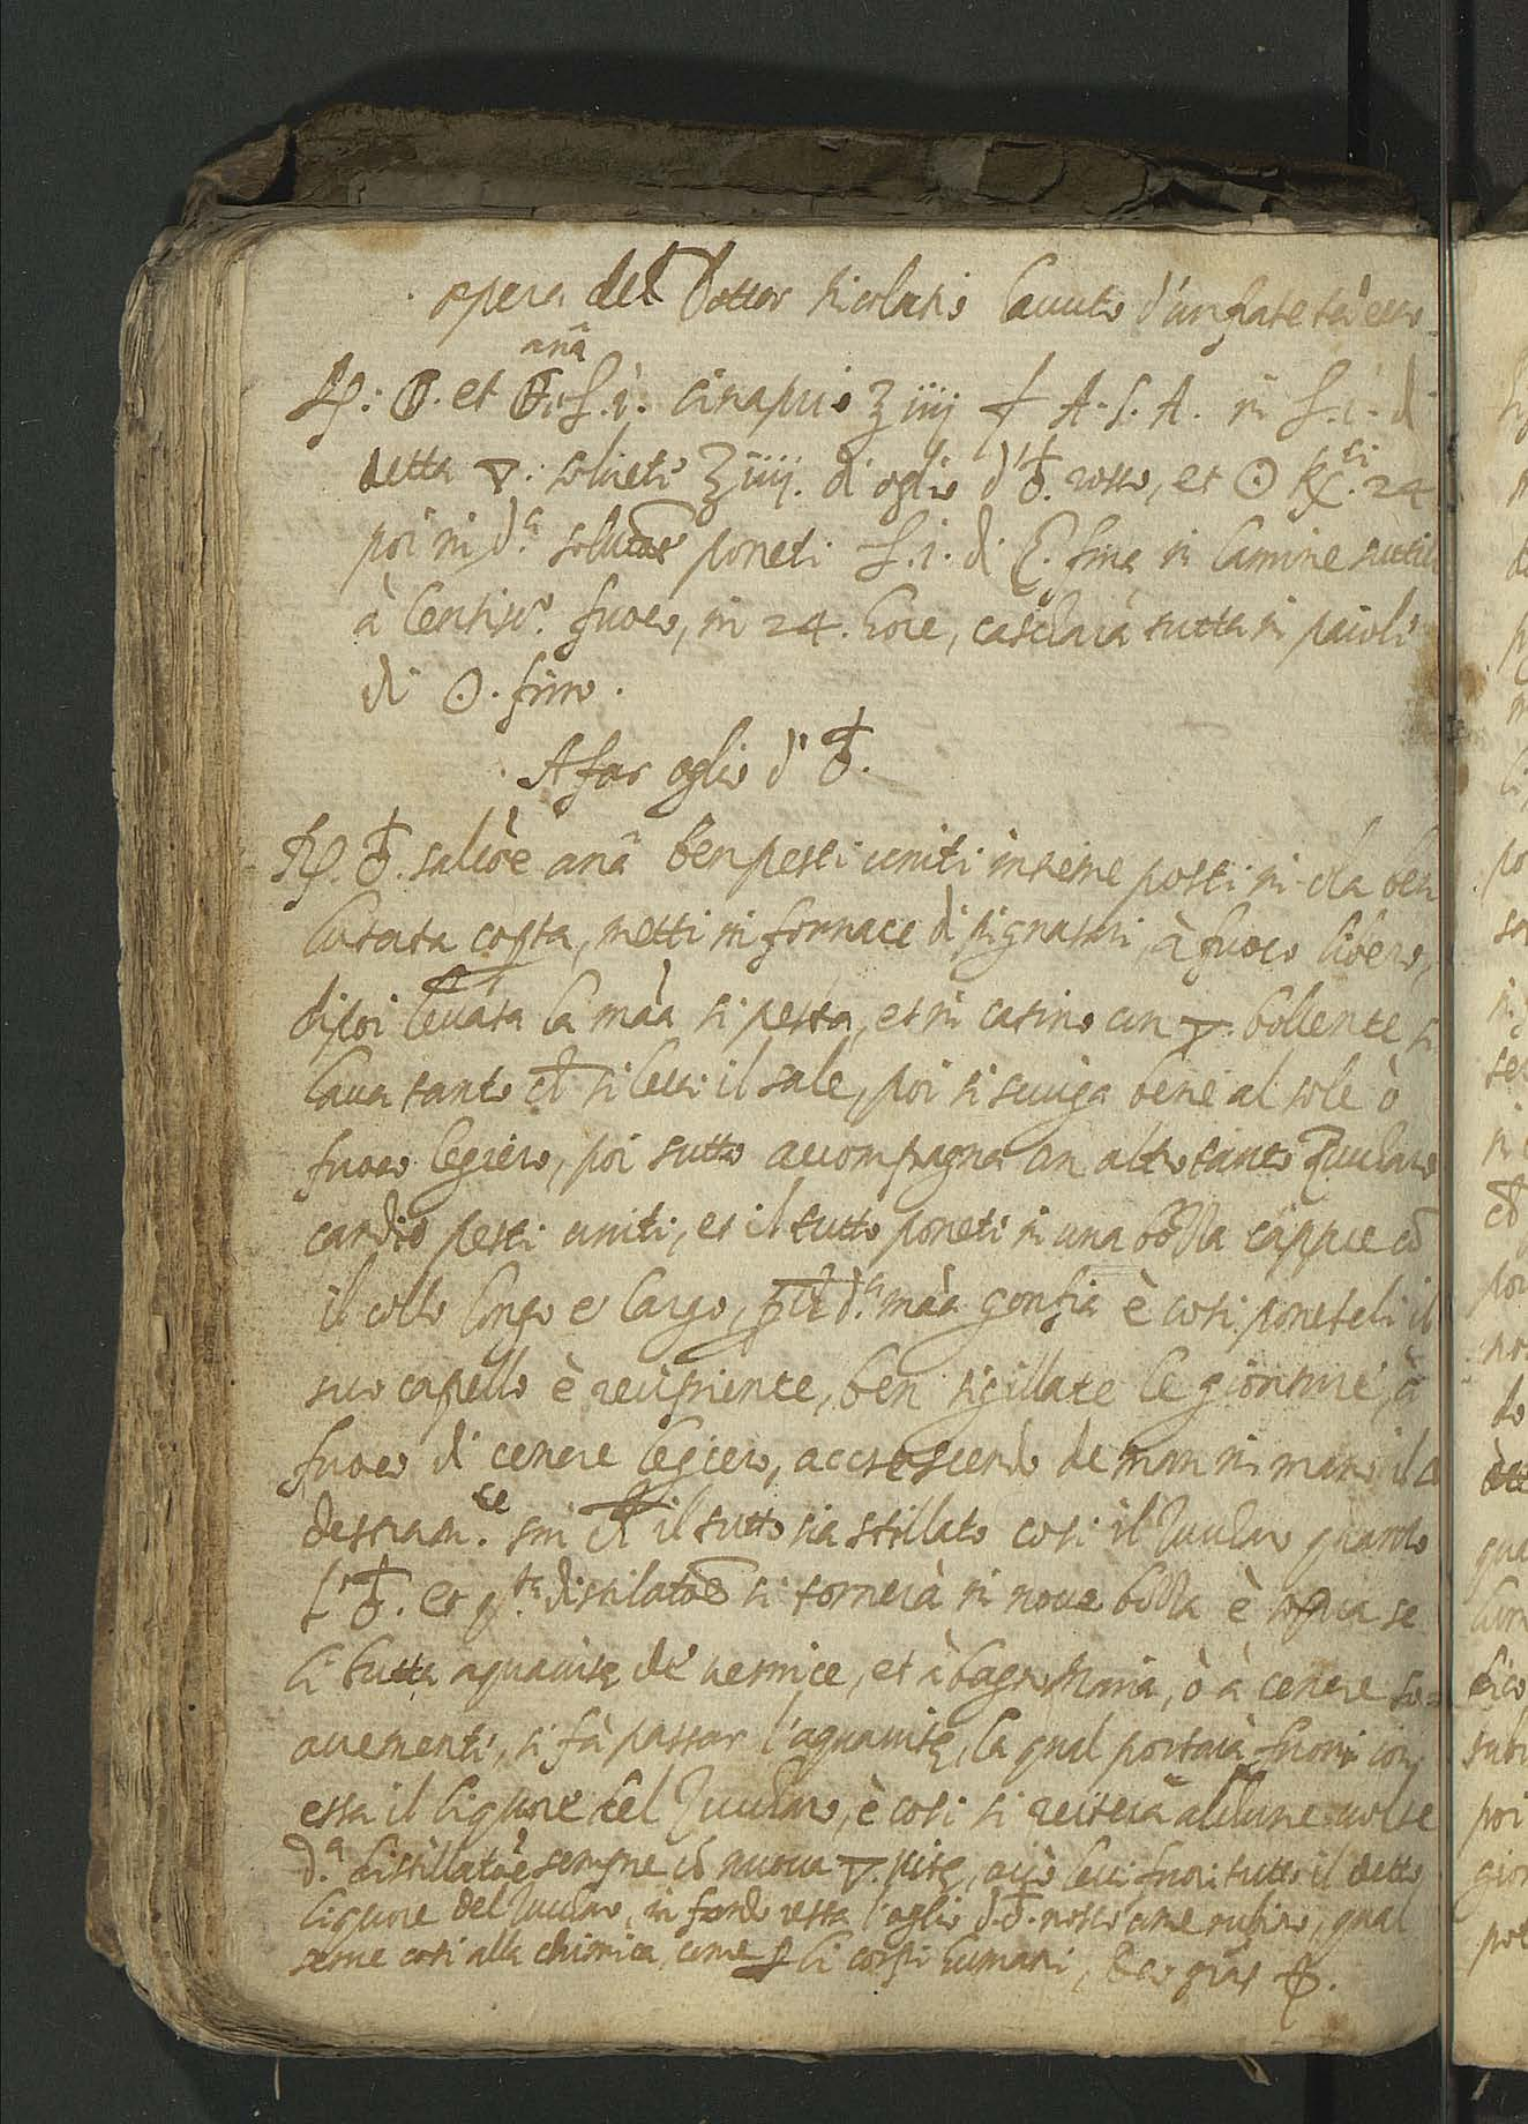 opera del Dottor Nicolasio hauuto d'un frate
anã
℞: 🜕. et 🜖. £. i. cinaprio ℥ iiij f A. S. A. in £. i. di
detta 🜄. solueti ℥ iiij. di oglio d'♁. rosso, et ☉ K.ti 24
poi in d.a solutõe poneti £. i. di fina in lamine sutili
à lentiss.o fuoco, in 24. hore, cascharà tutta in paioli
di ☉. fino.
A far oglio d'♁.
℞. ♁. salit͠re anã ben pesti uniti insieme posti in ola ben
lutata copta, metti in fornace di pignatari à fuoco libero,
dipoi leuata la mãa si pesta, et in catino cun 🜄 bollente si
laua tanto ch̃ si leui il sale, poi si sciuga bene al sole ò
fuoco legiero, poi tutto accompagna cun altro tanto Zuccharo
candio pesti uniti, et il tutto poneti in una bozza cappace cõ
il collo longo e largo, p̱ch̃ d.a mãa gonfia è cosi poneteli il
suo capello è recipiente, ben sigillate le gionture, à
fuoco di cenere legiero, accrescendo de man in mano il
destram.te sin ch̃ il tutto sia stillato cosi il Zuccharo quanto
l'♁. et q.ta distilatõe si tornerà in noua bozza è sopra se
li butta aquauite de vernice, et à bagno Maria, ò à cenere so=
auementi, si fà passar l'aquauite, la qual portarà fuori con
essa il liquore del Zuccharo, è cosi si reiterà alchune uolte
d.a distillatõe sempre cõ nuoua 🜄. uite, acciò leui fuori tutto il detto
liquore del Zuccharo, in fondo resta l'oglio d.♁. rosso come rubino, qual
serue cosi alla chimica, come p̱ li corpi humani, Deo gr̃as